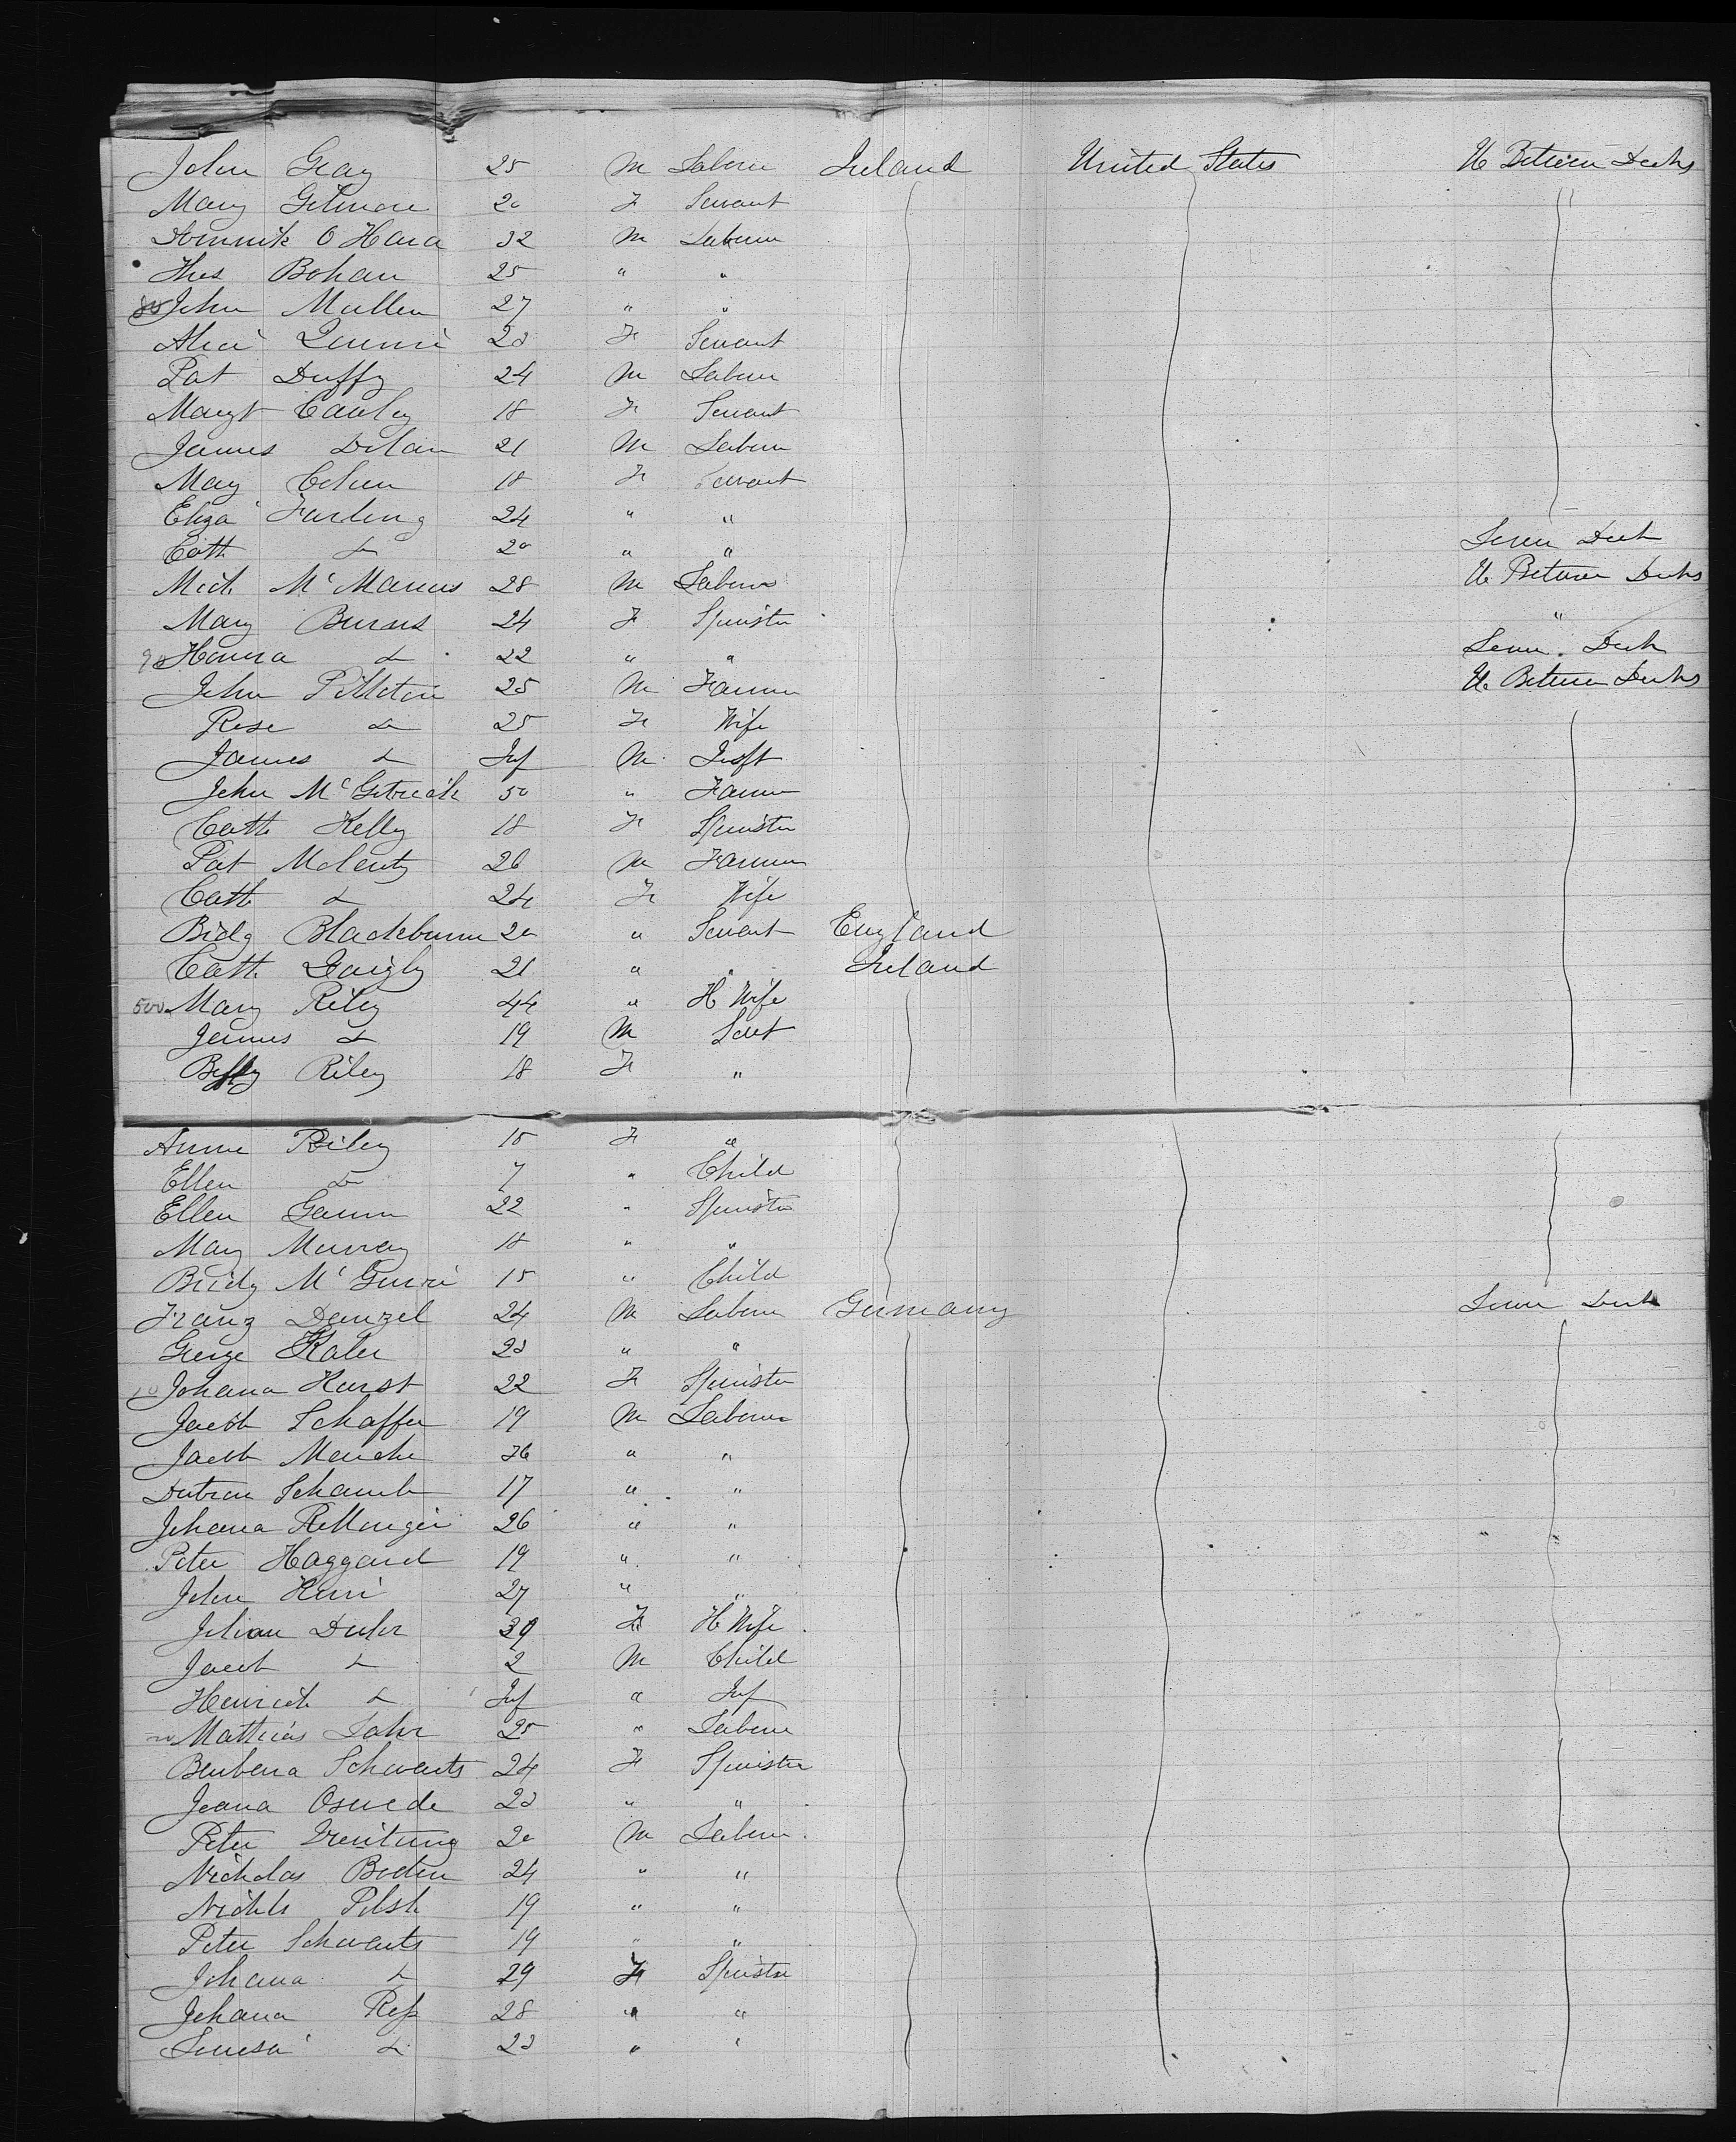 John Gray 25 M Laborer Ireland United States U Between Decks
Mary Gilmore 20 F Servant
Dominik O Hara 32 M Laborer
Thos Bohan 25 " "
John Mullen 27 " "
Alice 23 F Servant
Pat Duffy 24 M Laborer
Margt Cauley 18 F Servant
James Dolan 21 M Laborer
Mary 18 F Servant
Eliza Furlong 24 " "
Cath Do 20 " " Lower Deck
Mich McManus 28 M Laborer U Between Decks
Mary Burns 24 F Spinster "
90 Honora Do 22 " " Lower Deck
John 25 M Farmer U Between Decks
Rose Do 25 F Wife
James Do Inf M Inft
John McGetrick 50 " Farmer
Cath Kelly 18 F Spinster
Pat 26 M Farmer
Cath Do 24 F Wife
Bidg Blackburne 20 " Servant England
Cath Quigly 21 " " Ireland
500 Mary Riley 44 " H Wife
James Do 19 M Sert
Betty Riley 18 F "
Anne Riley 15 F "
Ellen Do 7 " Child
Ellen 22 " Spinster
Mary Murray 18 " "
Bridg 15 " Child
Franz Denzel 24 M Laborer Germany Lower Deck
George Kater 23 " "
10 Johana Hurst 22 F Spinster
Jacob Schaffer 19 M Laborer
Jacob 36 " "
17 " "
Johana 26 " "
Peter Haggard 19 " "
John 27 " "
39 F H Wife
Jacob Do 2 M Child
Heinrich Do Inf " Inf
20 Mathias Lahr 25 " Laborer
Schwarts 24 F Spinster
Joana 23 " "
Peter 20 M Laborer
Nicholas Boden 24 " "
19 " "
Peter Schwarts 19 " "
Johana Do 29 F Spinster
Johana Ress 28 " "
Do 23 " "